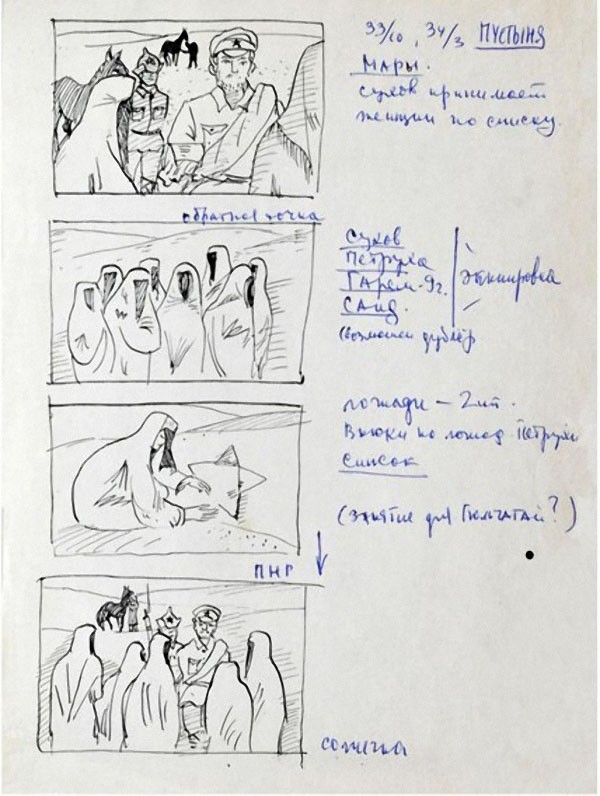 33/10, 34/3 ПУСТЫНЯ
МАРЫ.
сухов принимает
женщин по списку.
обратная точка
Сухов
Петруха
Гарем - 9г.
САИД.
(возможен дублёр
Экипировка
лошади — 2 шт.
Вьюки на лошад. Петрухи
Список
(занятие для Гюльчатай?)
ПНР